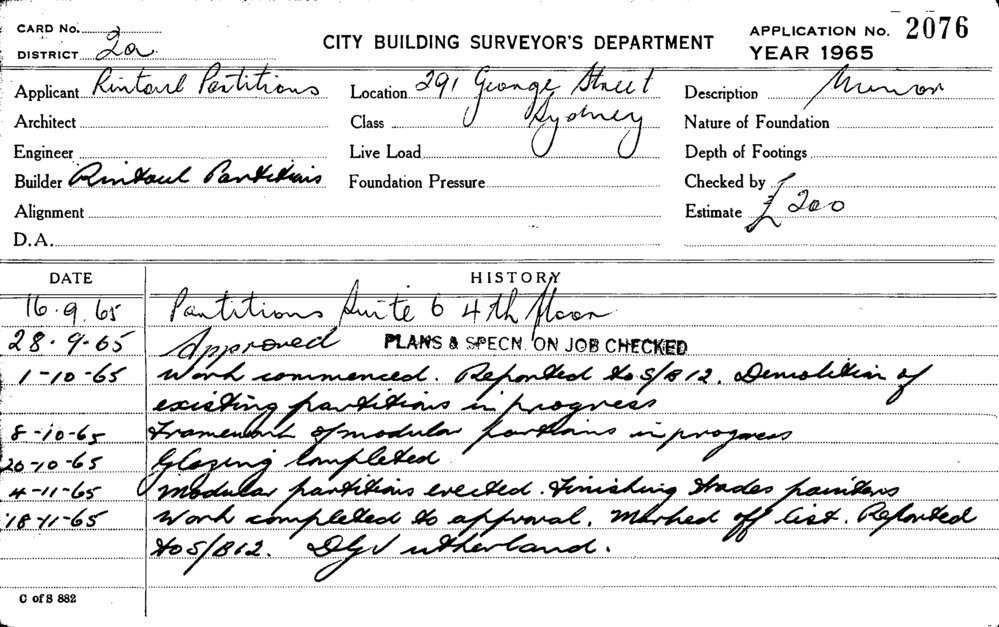 CARD No.
DISTRICT 2a
CITY BUILDING SURVEYOR'S DEPARTMENT
APPLICATION No. 2076
YEAR 1965
Applicant Rintoul Partitions
Location 291 George Street
Sydney
Description Minor
Architect
Class
Nature of Foundation
Engineer
Live Load
Depth of Footings
Builder Rintoul Partitions
Foundation Pressure
Checked by
Alignment
Estimate £200
D.A.
DATE HISTORY
16.9.65 Partitions Suite 6 4th floor
28.9.65 Approved PLANS & SPECN. ON JOB CHECKED
1-10-65 Work commenced. Reported to S/B 12. Demolition of
existing partitions in progress
8-10-65 Framework of modular partitions in progress
20-10-65 Glazing completed
4-11-65 Modular partitions erected. Finishing trades painters
18-11-65 Work completed to approval. Marked off list. Reported
to S/B 12.
C of S 882